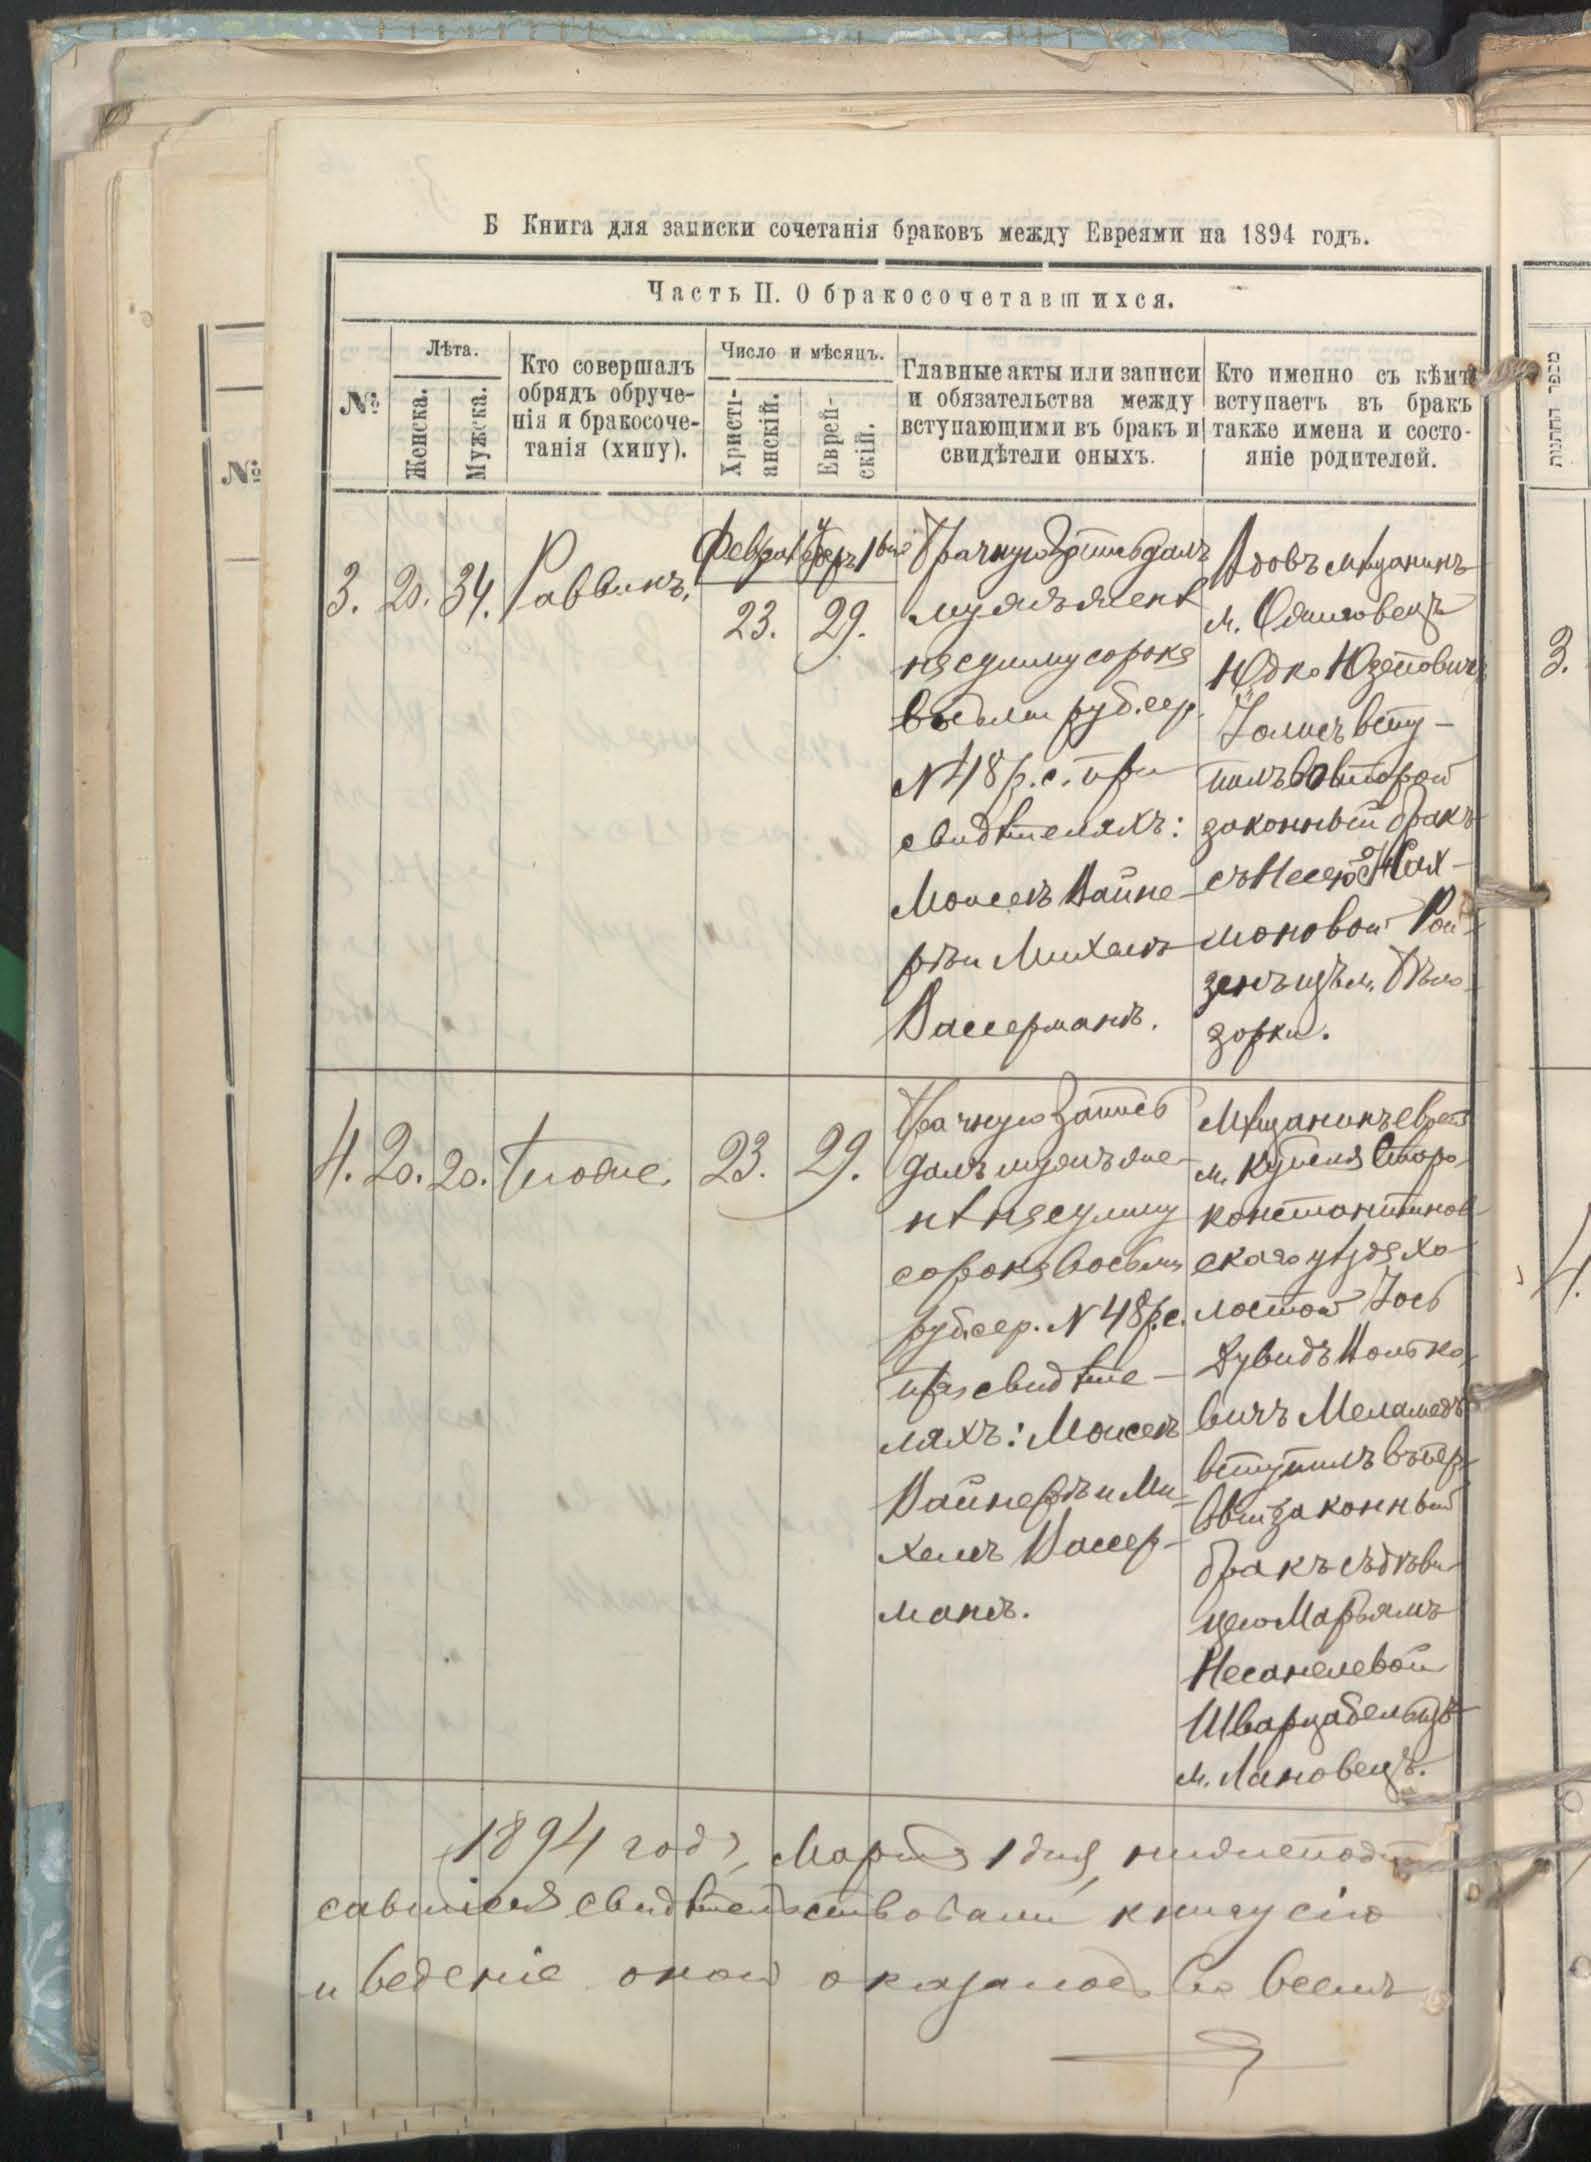 Б Книга для записки сочетанія браковъ между Евреями на 1894 годъ.
Часть II. О бракосочетавшихся.
№
Лѣта.
Женска.
Мужска.
Кто совершалъ
обрядъ обруче-
нія и бракосоче-
танія (хипу).
Число и мѣсяцъ.
Христі-
анскій.
Еврей-
скій.
Главные акты или записи
и обязательства между
вступающими въ бракъ и
свидѣтели оныхъ.
Кто именно съ кѣмъ
вступаетъ въ бракъ
также имена и состо-
яніе родителей.
3. 20. 34. Раввинъ.
23. 29.
Брачную запись далъ
мужъ женѣ
на сумму сорокъ
восемь руб. сер.
№ 48 р. с. при
свидѣтеляхъ:
Моисей Вайне-
ръ и Михель
Вассерманъ.
Вдовъ мѣщанинъ
м.
Юдко Юзеповичъ
всту-
пилъ во второй
законный бракъ
съ Несею Нах-
моновой Рой-
зенъ изъ м. Бѣло-
зорки.
4. 20. 20. Тоже. 23. 29.
Брачную запись
далъ мужъ же-
нѣ на сумму
сорокъ восемь
руб. сер. № 48 р. с.
при свидѣте-
ляхъ: Моисей
Вайнеръ и Ми-
хель Вассер-
манъ.
Мѣщанинъ еврей
м. Купеля Старо-
константинов-
скаго уѣзда хо-
лостой Іось
Дувидъ Волько-
вичъ Меламедъ
вступилъ въ пер-
вый законный
бракъ съ дѣви-
цею Марьямъ
Несанелевой
Шварцабель изъ
м. Лановецъ.
1894 года, Марта 1 дня, нижеподпи
савшіеся свидѣтельствовали книгу сію
и веденіе оной оказалось во всемъ
מספר החתונות
3.
4.
№